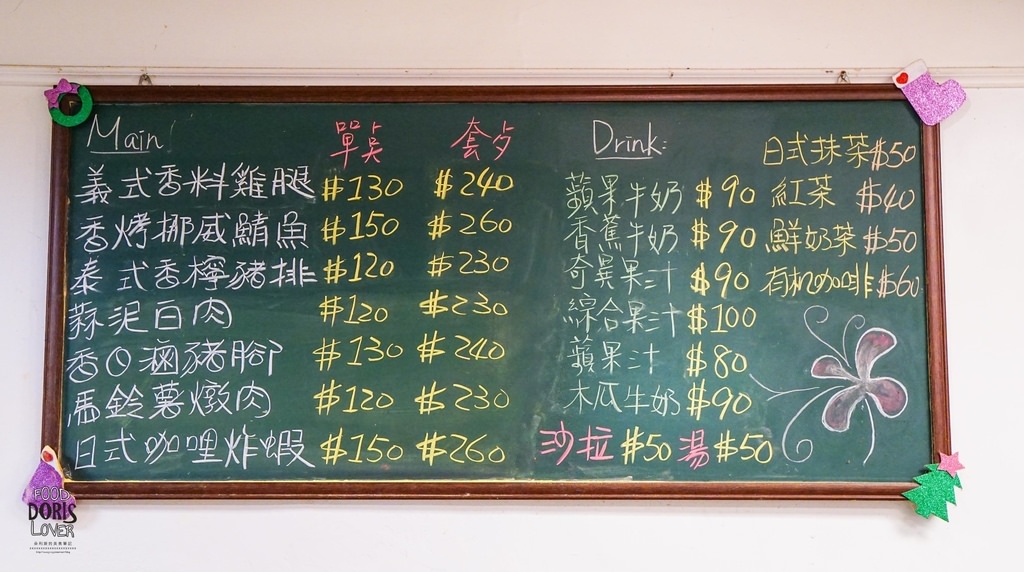 Main 單點 套歺
義式香料雞腿 $130 $240
香烤挪威鯖魚 $150 $260
泰式香檸豬排 $120 $230
蒜泥白肉 $120 $230
香Q滷豬腳 $130 $240
馬鈴薯燉肉 $120 $230
日式咖哩炸蝦 $150 $260
Drink:
蘋果牛奶 $90
香蕉牛奶 $90
奇異果汁 $90
綜合果汁 $100
蘋果汁 $80
木瓜牛奶 $90
沙拉 $50 湯 $50
日式抹茶 $50
紅茶 $40
鮮奶茶 $50
有机咖啡 $60
FOOD
DORIS
LOVER